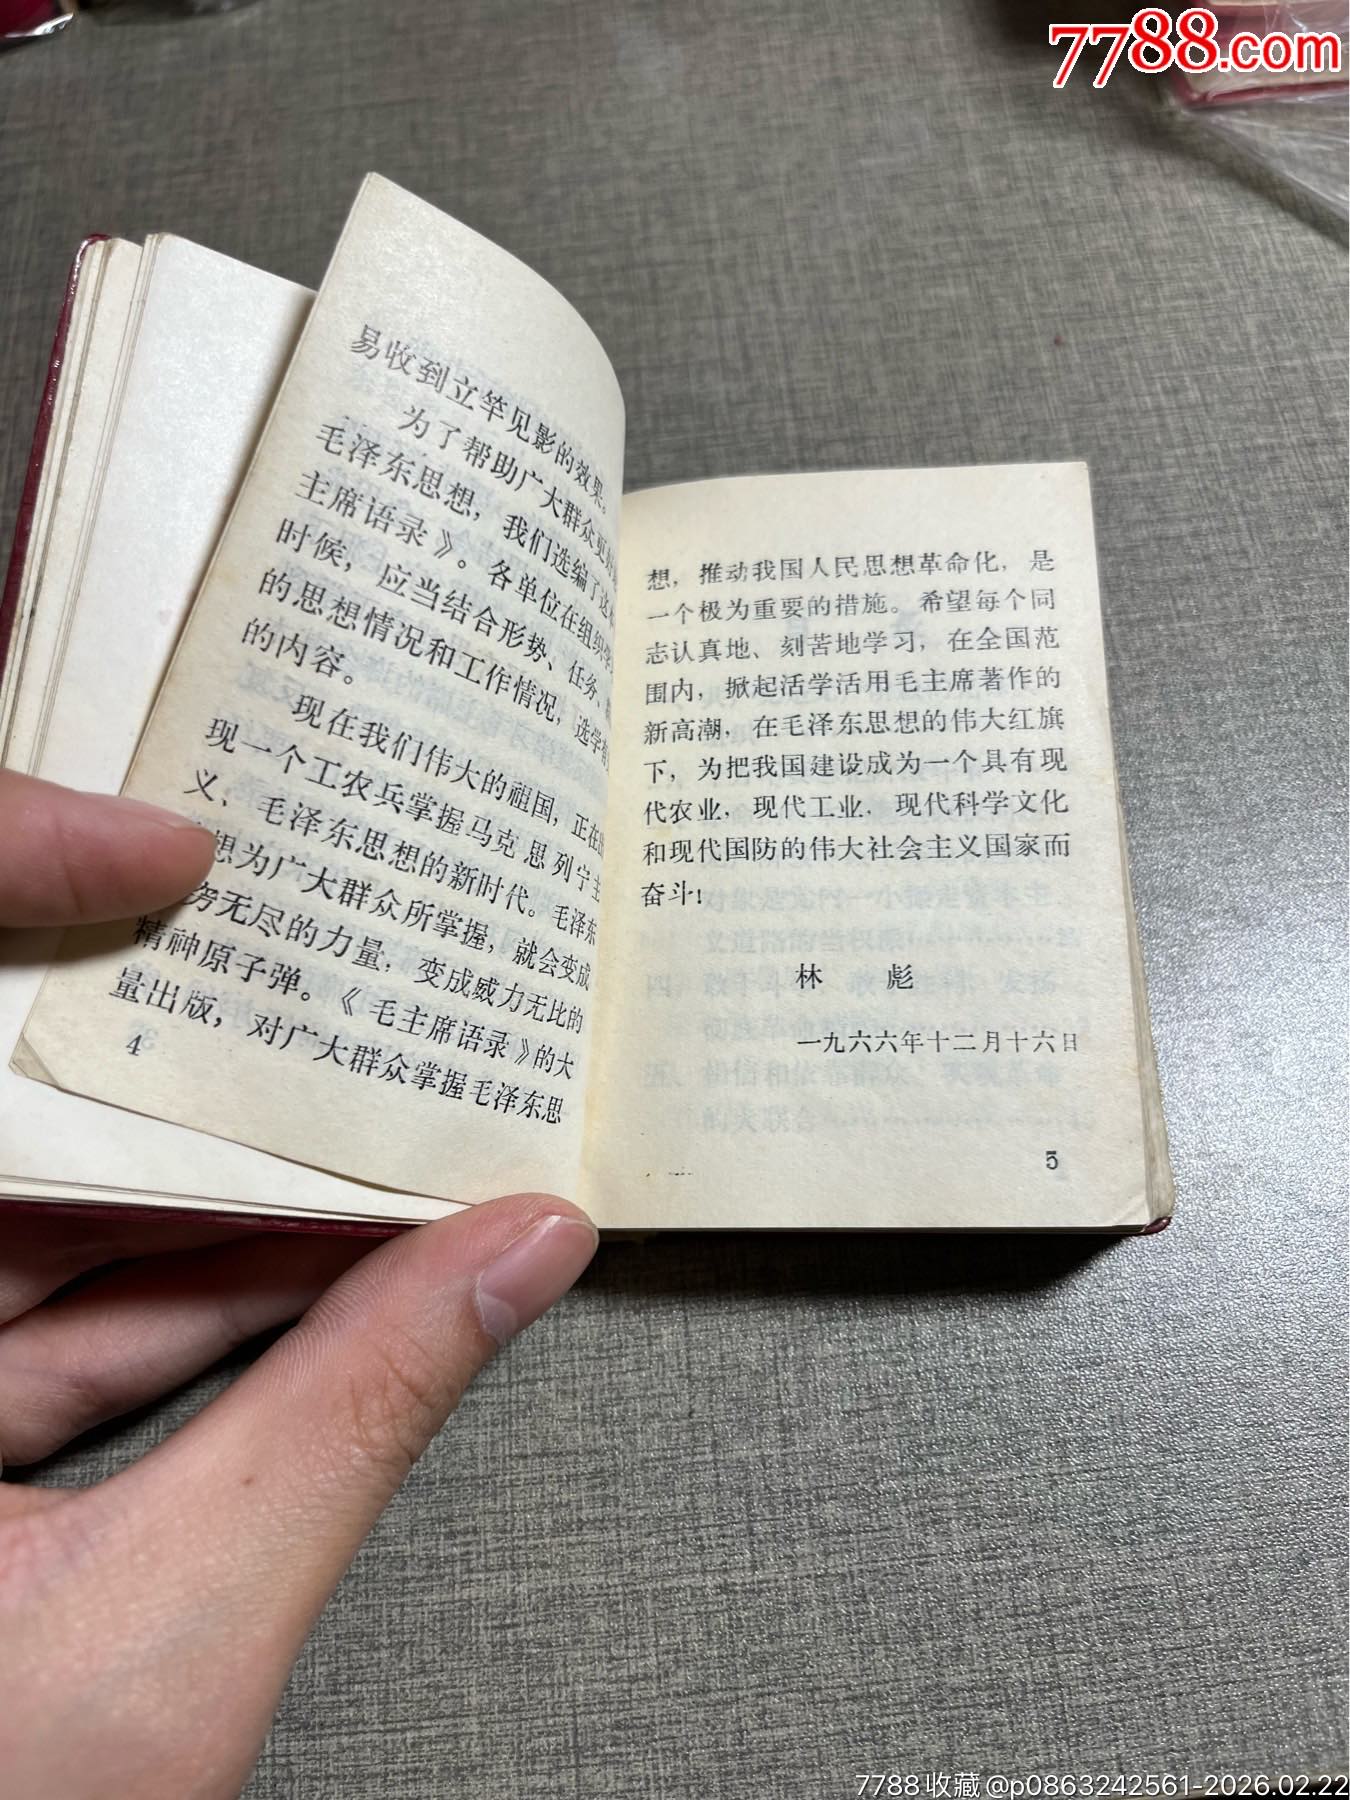 7788.com
易收到立竿见影的效果。
为了帮助广大群众更好
毛泽东思想，我们选编了这
主席语录》。各单位在组织学
时候，应当结合形势、任务、
的思想情况和工作情况，选学
的内容。
现在我们伟大的祖国，正在出
现一个工农兵掌握马克思列宁主
义、毛泽东思想的新时代。毛泽东
想为广大群众所掌握，就会变成
穷无尽的力量，变成威力无比的
精神原子弹。《毛主席语录》的大
量出版，对广大群众掌握毛泽东思
4
想，推动我国人民思想革命化，是
一个极为重要的措施。希望每个同
志认真地、刻苦地学习，在全国范
围内，掀起活学活用毛主席著作的
新高潮，在毛泽东思想的伟大红旗
下，为把我国建设成为一个具有现
代农业，现代工业，现代科学文化
和现代国防的伟大社会主义国家而
奋斗！
林 彪
一九六六年十二月十六日
5
7788收藏@p0863242561-2026.02.22